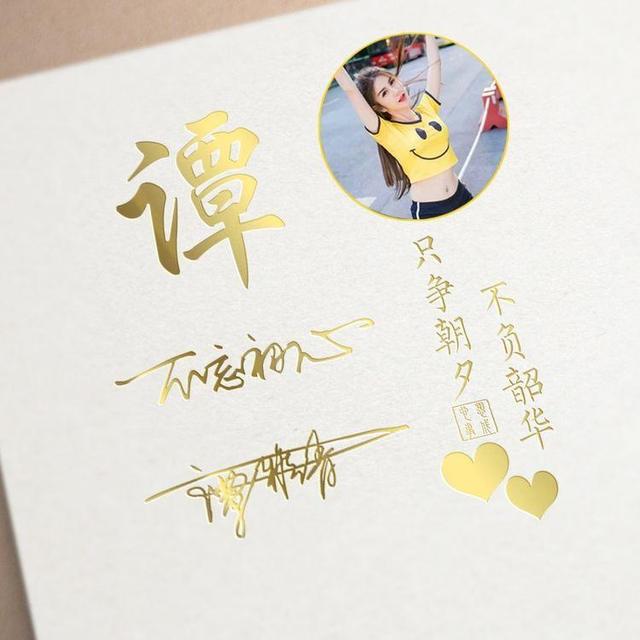 谭
不忘初心
只争朝夕
不负韶华